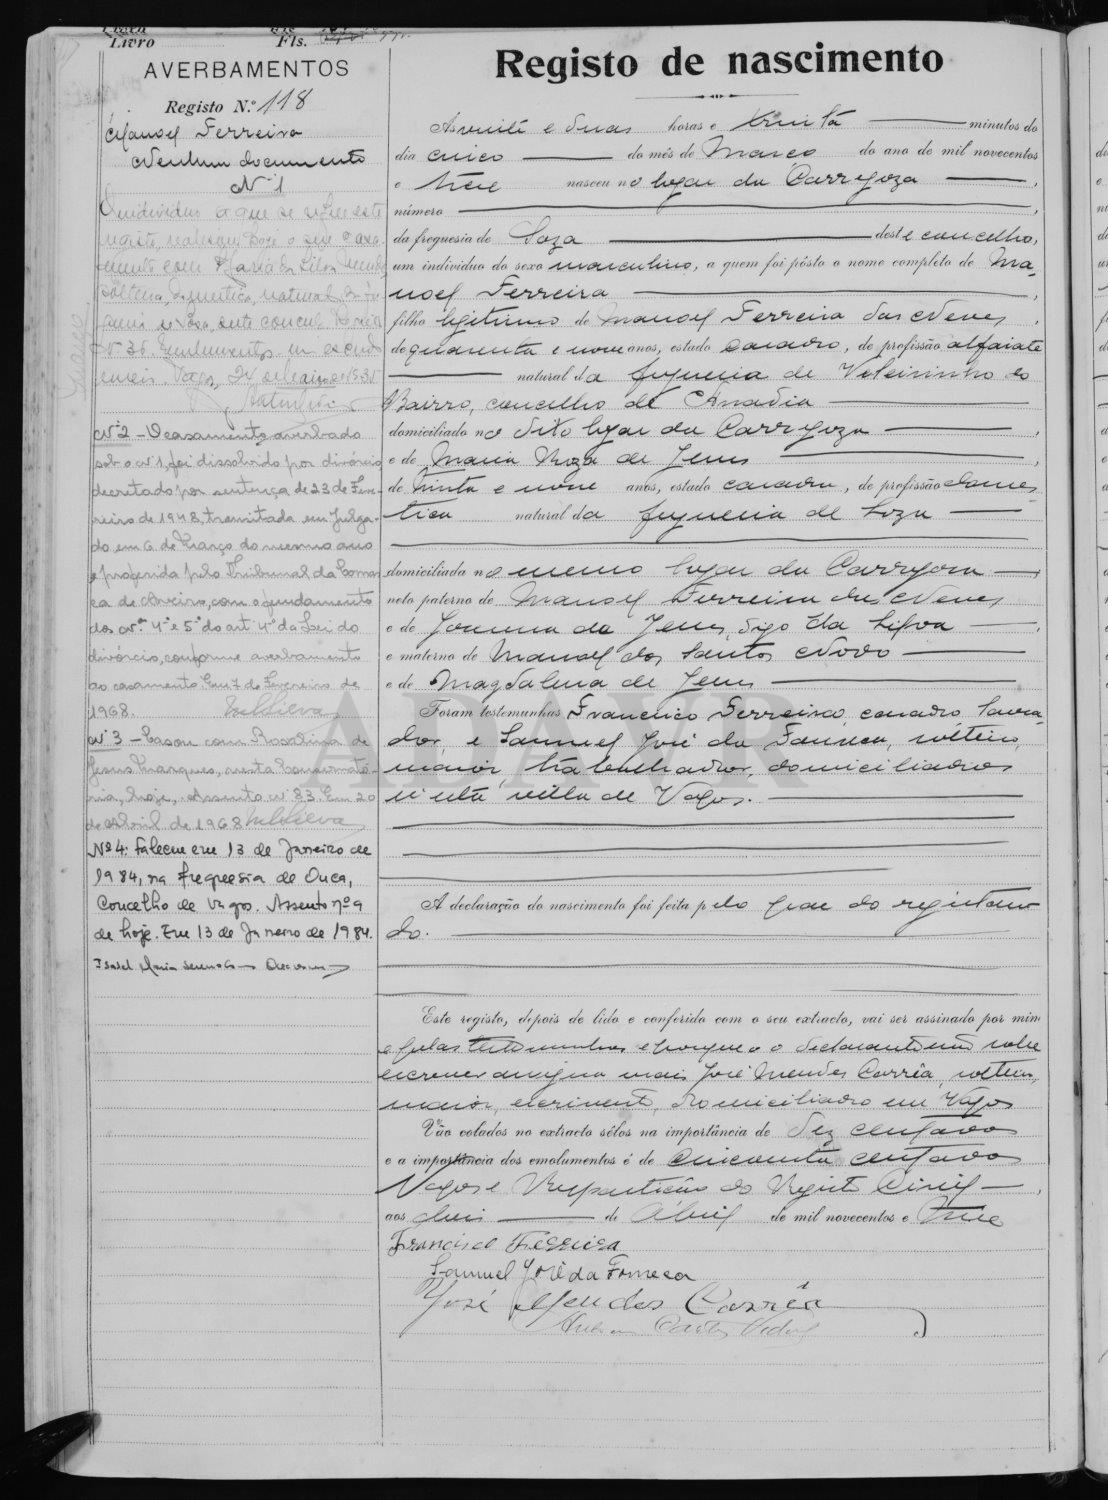 Livro Fls.
AVERBAMENTOS
Registo N.º 118
Manoel Ferreira
Nenhum documento
Nº 1
O individuo a que se refere este
registo, hoje o seu casa-
mento com Maria da Silva
solteira, domestica, natural da fre-
guesia de Soza, deste concelho
Nº 36. Emolumentos um escudo
Vagos, 24 de 1935
Nº 2 - O casamento averbado
sob o nº 1, foi dissolvido por divórcio
decretado por sentença de 23 de Feve-
reiro de 1948, transitada em julga-
do em 6 de Março do mesmo ano
e proferida pelo Tribunal da Comar-
ca de Aveiro, com o fundamento
dos nºs 4º e 5º do artº 4º da Lei do
divórcio, conforme averbamento
ao casamento. Em 7 de Fevereiro de
1968.
Nº 3 - Casou com Rosalina de
Jesus Marques, nesta Conservató-
ria, hoje, Assento nº 83. Em 20
de Abril de 1968
Nº 4: Faleceu em 13 de Janeiro de
1984, na freguesia de Ouca,
Concelho de Vagos. Assento nº 9
de hoje. Em 13 de Janeiro de 1984.
Isabel Maria
Registo de nascimento
Ás vinte e duas horas e trinta minutos do
dia cinco do mês de Março do ano de mil novecentos
e treze nasceu no logar da Carregoza
número
da freguesia de Soza deste concelho,
um indivíduo do sexo masculino, a quem foi pôsto o nome completo de Ma-
noel Ferreira
filho legitimo de Manoel Ferreira das Neves
de quarenta e nove anos, estado casado, de profissão alfaiate
natural da freguesia de Vilarinho do
Bairro, concelho de Anadia
domiciliado no dito logar da Carregoza
e de Maria Roza de Jesus
de trinta e nove anos, estado casada, de profissão domes-
tica natural da freguesia de Soza
domiciliada no mesmo logar da Carregoza
neto paterno de Manoel Ferreira das Neves
e de Joanna de Jesus, digo da Silva
e materno de Manoel dos Santos Novo
e de Magdalena de Jesus
Foram testemunhas Francisco Ferreira, casado, lavra-
dor, e Samuel José da Fonseca, solteiro,
maior, trabalhador, domiciliados
n'esta villa de Vagos.
A declaração do nascimento foi feita pelo pae do registan-
do.
Este registo, depois de lido e conferido com o seu extracto, vai ser assinado por mim
e pelas testemunhas e porque o declarante não sabe
escrever assigna mais José Mendes Corrêa, solteiro,
maior, escrevente, domiciliado em Vagos
Vão colados no extracto sêlos na importância de dez centavos
e a importância dos emolumentos é de cincoenta centavos
Vagos e Repartição do Registo Civil
aos dois de Abril de mil novecentos e treze
Francisco Ferreira
Samuel José da Fonseca
José Mendes Corrêa
ADAVR